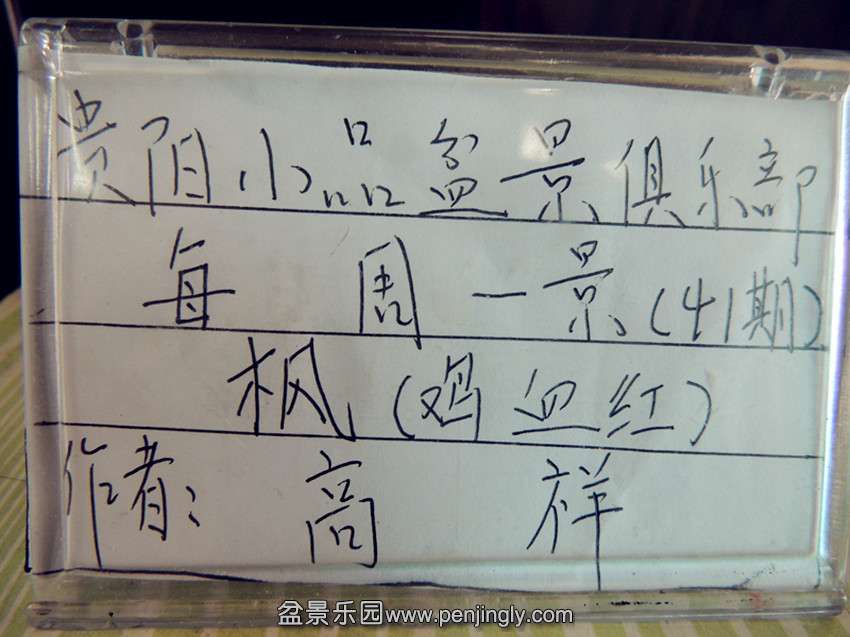 贵阳小品盆景俱乐部
每周一景(41期)
枫(鸡血红)
作者:高祥
盆景乐园www.penjingly.com